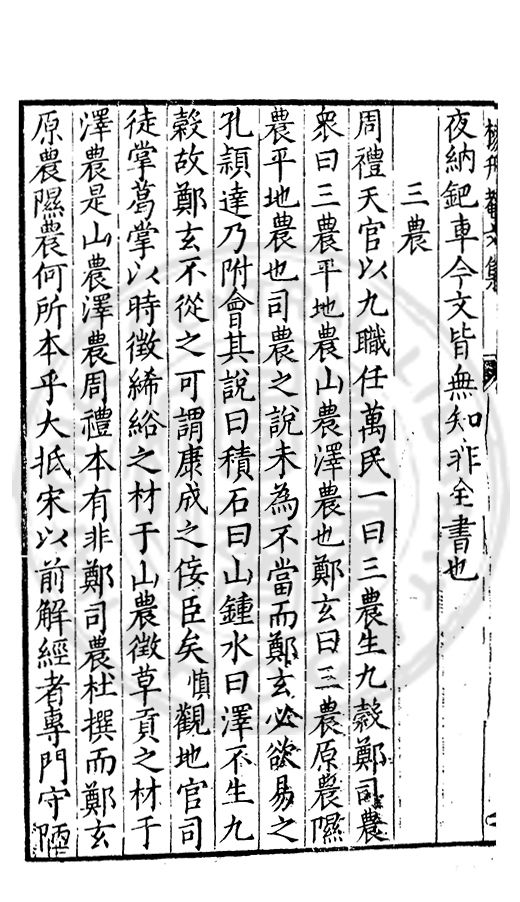 夜納鈀車今文皆無知非全書也
三農
周禮天官以九職任萬民一曰三農生九穀鄭司農
衆曰三農平地農山農澤農也鄭玄曰三農原農隰
農平地農也司農之說未為不當而鄭玄必欲易之
孔頴達乃附會其說曰積石曰山鍾水曰澤不生九
穀故鄭玄不從之可謂康成之侫臣矣慎觀地官司
徒掌葛掌以時徵絺綌之材于山農徵草貢之材于
澤農是山農澤農周禮本有非鄭司農杜撰而鄭玄
原農隰農何所本乎大抵宋以前解經者專門守陋